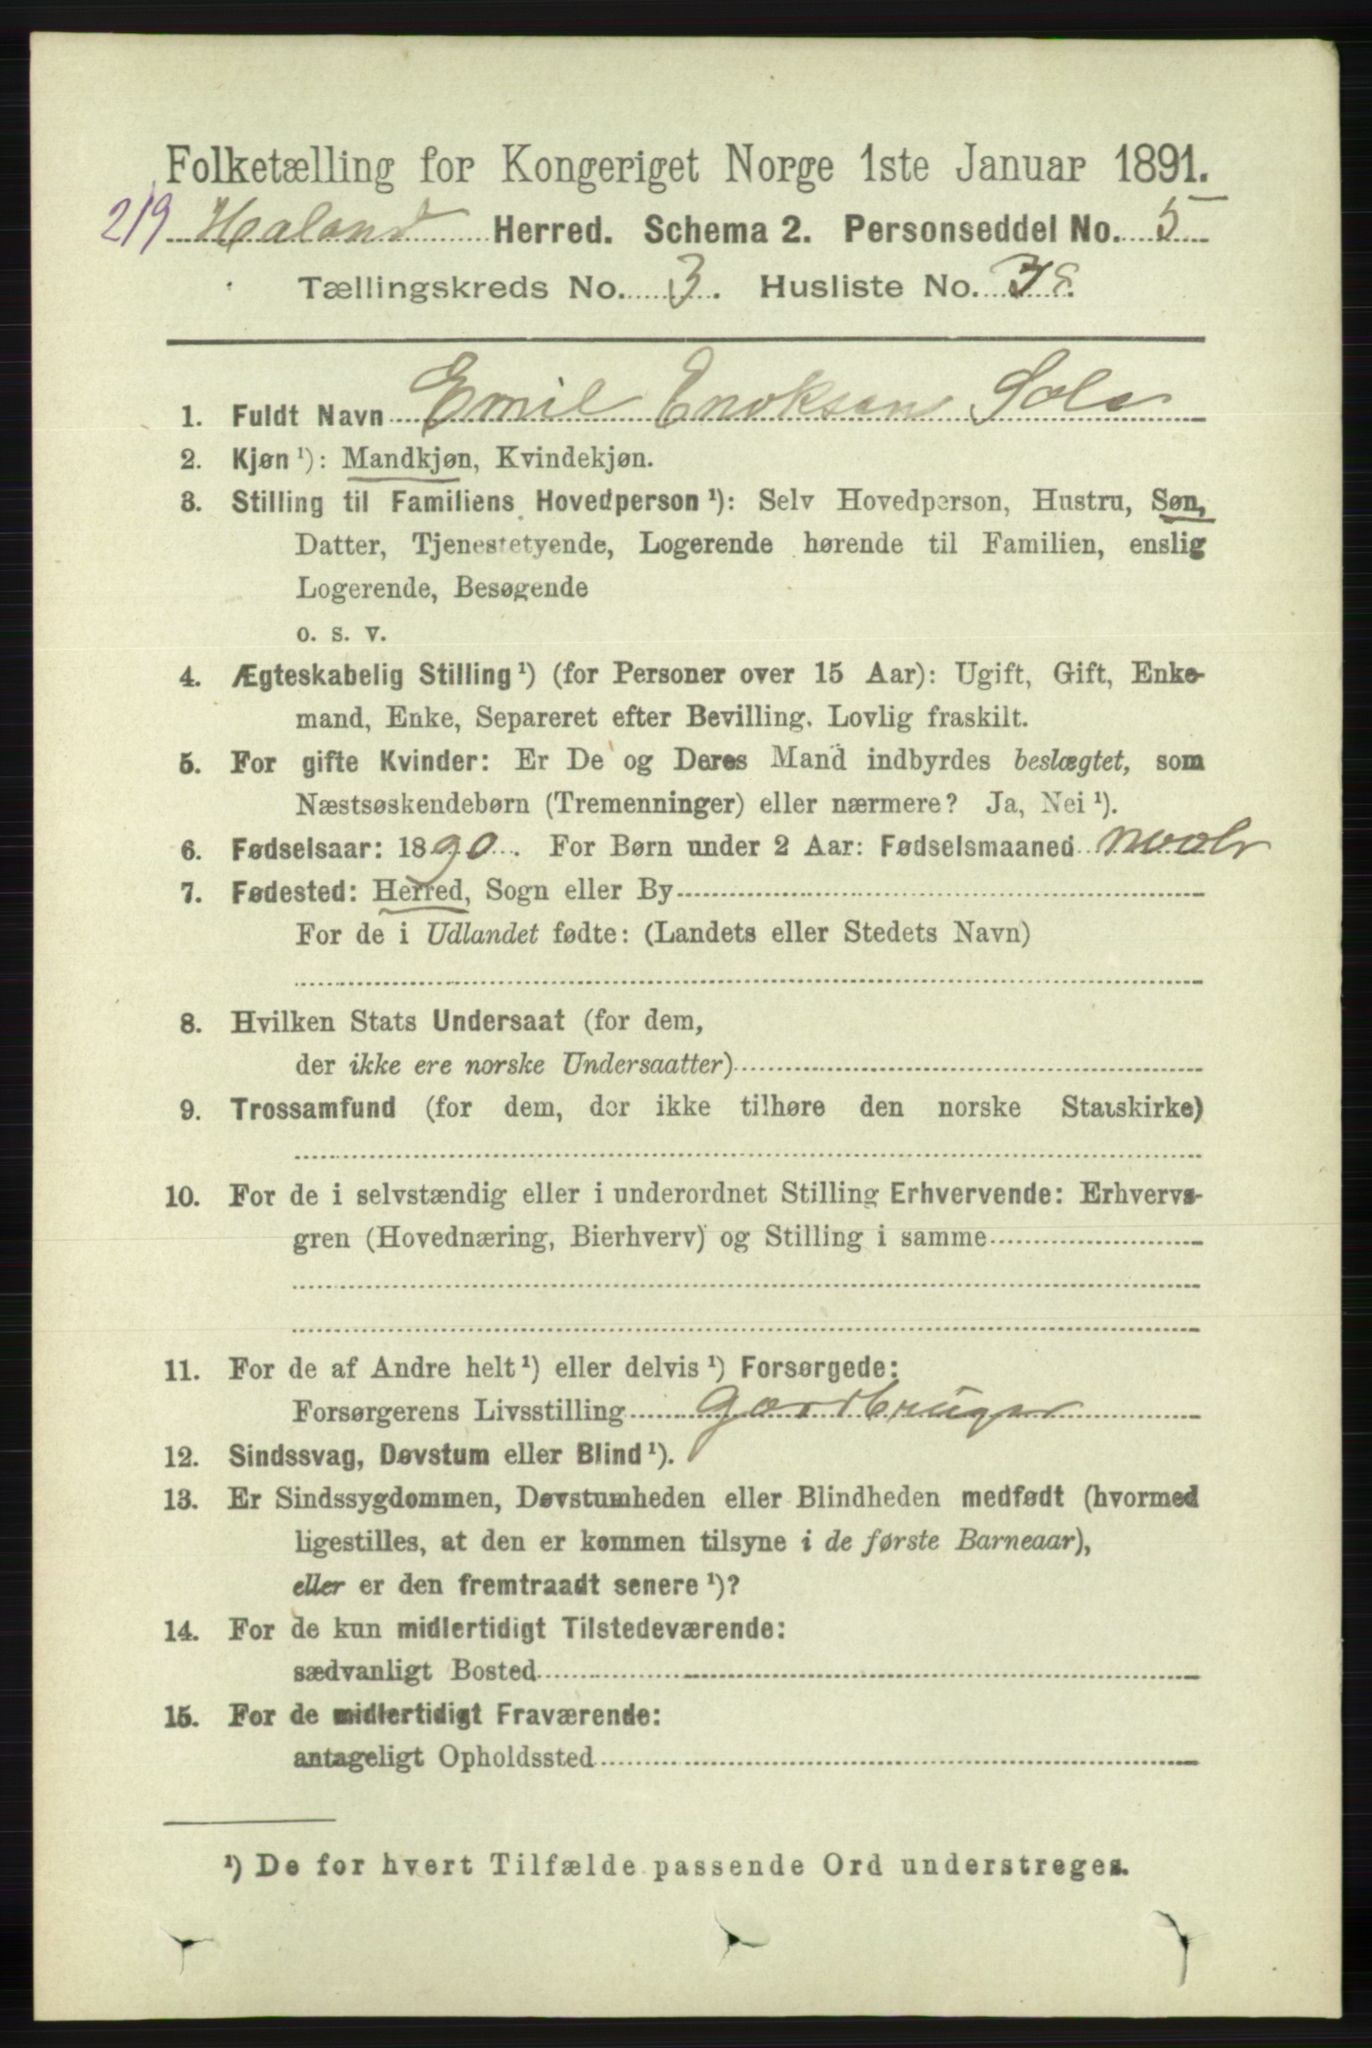 Folketælling for Kongeriget Norge 1ste Januar 1891.
219 Haland Herred. Schema 2. Personseddel No. 5
Tællingskreds No. 3. Husliste No. 38.
1. Fuldt Navn Emil Enoksen Sola
2. Kjøn ¹): Mandkjøn, Kvindekjøn.
3. Stilling til Familiens Hovedperson ¹): Selv Hovedperson, Hustru, Søn,
Datter, Tjenestetyende, Logerende hørende til Familien, enslig
Logerende, Besøgende
o. s. v.
4. Ægteskabelig Stilling ¹) (for Personer over 15 Aar): Ugift, Gift, Enke-
mand, Enke, Separeret efter Bevilling. Lovlig fraskilt.
5. For gifte Kvinder: Er De og Deres Mand indbyrdes beslægtet, som
Næstsøskendebørn (Tremenninger) eller nærmere? Ja, Nei ¹).
6. Fødselsaar: 1890. For Børn under 2 Aar: Fødselsmaaned
7. Fødested: Herred, Sogn eller By
For de i Udlandet fødte: (Landets eller Stedets Navn)
8. Hvilken Stats Undersaat (for dem,
der ikke ere norske Undersaatter)
9. Trossamfund (for dem, der ikke tilhøre den norske Statskirke)
10. For de i selvstændig eller i underordnet Stilling Erhvervende: Erhvervs-
gren (Hovednæring, Bierhverv) og Stilling i samme
11. For de af Andre helt ¹) eller delvis ¹) Forsørgede:
Forsørgerens Livsstilling Gaardbruger
12. Sindssvag, Døvstum eller Blind ¹).
13. Er Sindssygdommen, Døvstumheden eller Blindheden medfødt (hvormed
ligestilles, at den er kommen tilsyne i de første Barneaar),
eller er den fremtraadt senere ¹)?
14. For de kun midlertidigt Tilstedeværende:
sædvanligt Bosted
15. For de midlertidigt Fraværende:
antageligt Opholdssted
¹) De for hvert Tilfælde passende Ord understreges.